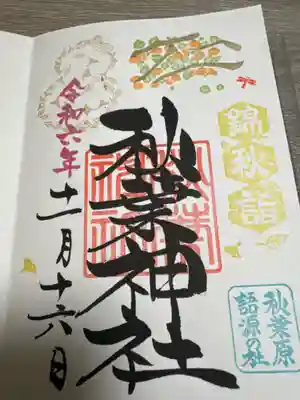 錦秋詣
秋葉神社
令和六年
十一月十六日
秋葉原
語源の社